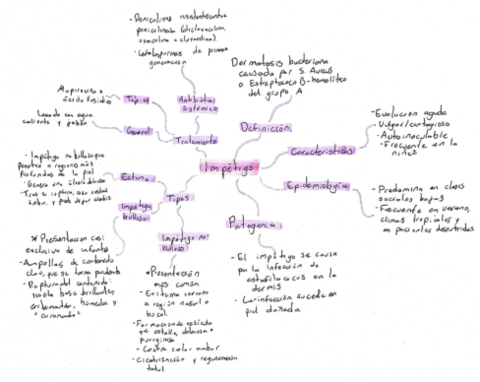 • Penicilinas resistentes a
penicilinasa (dicloxacilina,
oxacilina o cloxacilina).
• Cefalosporinas de primera
generación
Antibiótico
sistémico
Mupirocina o
ácido fusídico
Tópico
Lavado con agua
caliente y jabón
General
Tratamiento
Dermatosis bacteriana
causada por S. Aureus
o Estreptococo B-hemolítico
del grupo A
Definición
Impétigo
Características
- Evolución aguda
- Vulgar/contagioso
- Autoinoculable
- Frecuente en la
niñez
Epidemiología
- Predomina en clases
sociales bajas
- Frecuente en verano,
climas tropicales y
en pacientes desnutridos
Patogenia
- El impétigo se causa
por la infección de
estafilococos en la
dermis
- La infección sucede en
piel dañada
Tipos
Ectima
- Impétigo no bulloso que
penetra a regiones más
profundas de la piel
- Genera una úlcera
Impétigo
bulloso
* Presentación casi
exclusiva de infantes
- Ampollas de contenido
claro, que se torna purulento
- Ruptura del contenido:
base brillante,
eritematosa, húmeda y
"coronada"
Impétigo no
bulloso
* Presentación
más común
- Eritema cercano
a región nasal o
bucal
- Formación de vesícula
que estalla, dolorosa o
pruriginosa
- Costra color ámbar
- Cicatrización y regeneración
total